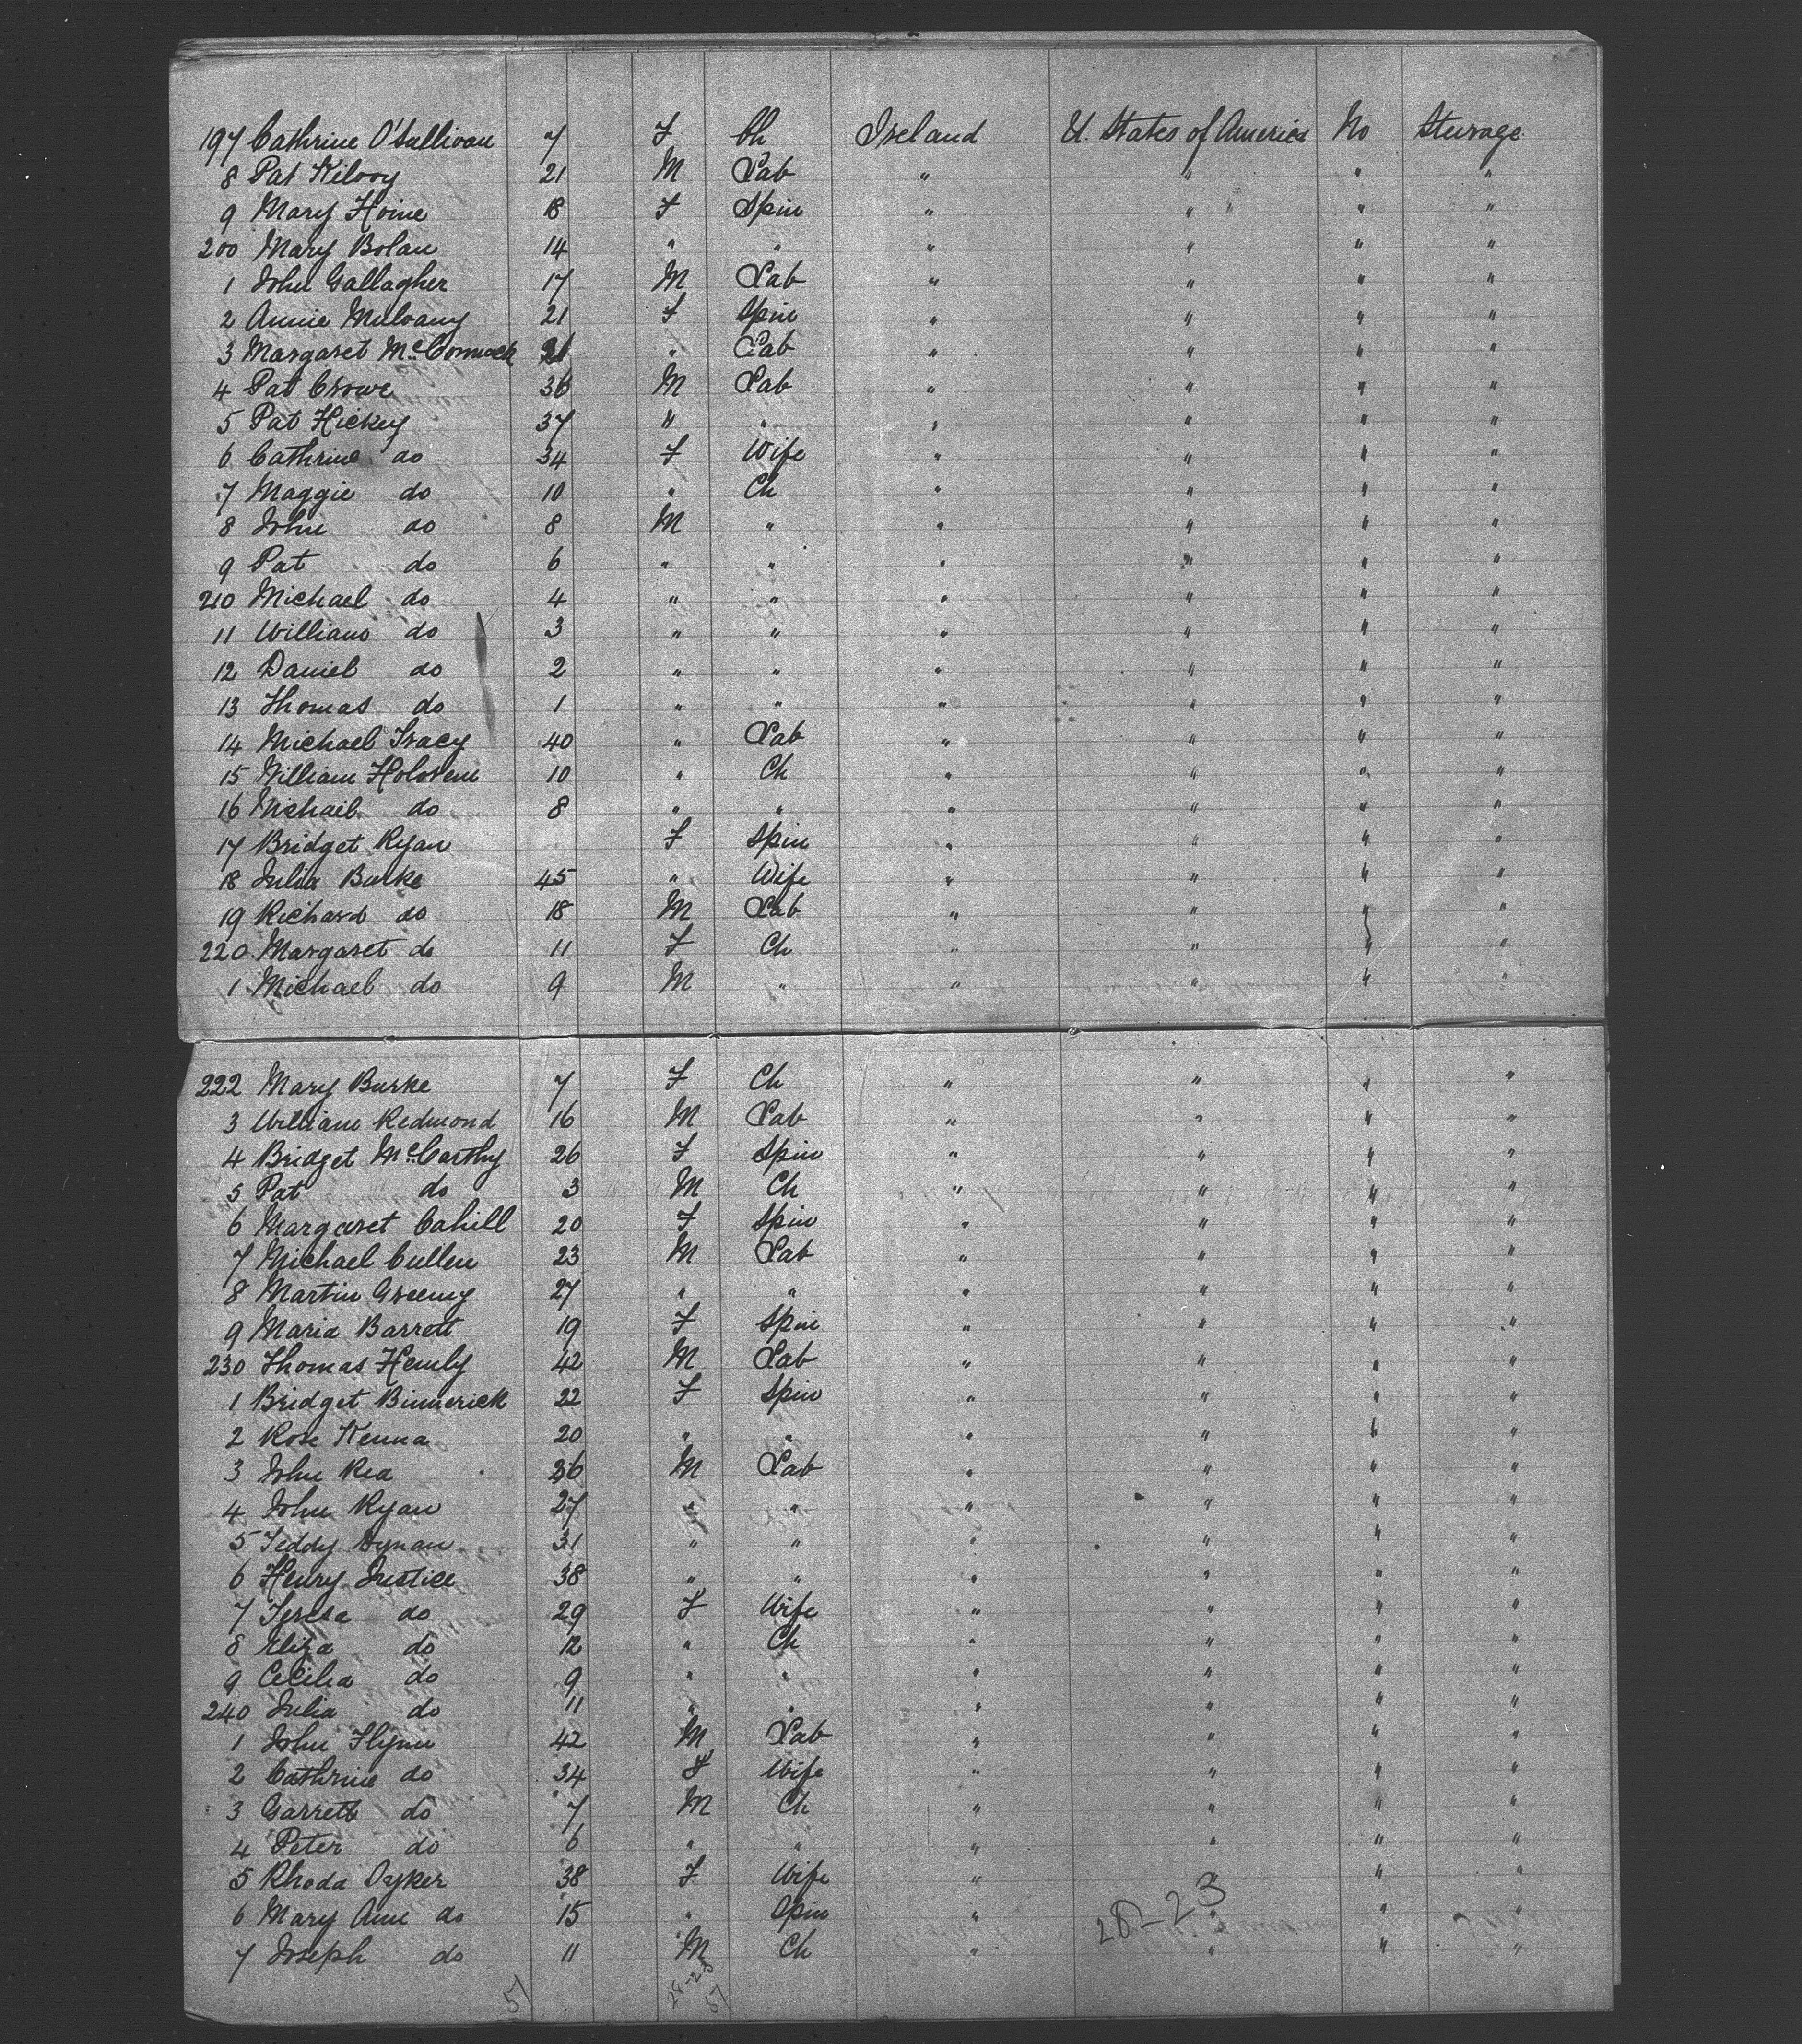 197 Cathrine O'Sullivan 7 F Ch Ireland U. States of America No Steerage
8 Pat Kilroy 21 M Lab " " " "
9 Mary Hoine 18 F Spin " " " "
200 Mary Bolan 14 " " " " " "
1 John Gallagher 17 M Lab " " " "
2 Annie Mulvany 21 F Spin " " " "
3 Margaret McCormack 21 " Lab " " " "
4 Pat Crowe 36 M Lab " " " "
5 Pat Hickey 37 " " " " " "
6 Cathrine do 34 F Wife " " " "
7 Maggie do 10 " Ch " " " "
8 John do 8 M " " " " "
9 Pat do 6 " " " " " "
210 Michael do 4 " " " " " "
11 William do 3 " " " " " "
12 Daniel do 2 " " " " " "
13 Thomas do 1 " " " " " "
14 Michael Tracy 40 " Lab " " " "
15 William 10 " Ch " " " "
16 Michael do 8 " " " " " "
17 Bridget Ryan F Spin " " " "
18 Julia Burke 45 " Wife " " " "
19 Richard do 18 M Lab " " " "
220 Margaret do 11 F Ch " " " "
1 Michael do 9 M " " " " "
222 Mary Burke 7 F Ch " " " "
3 William Redmond 16 M Lab " " " "
4 Bridget McCarthy 26 F Spin " " " "
5 Pat do 3 M Ch " " " "
6 Margaret Cahill 20 F Spin " " " "
7 Michael Cullen 23 M Lab " " " "
8 Martin Greeny 27 " " " " " "
9 Maria Barrett 19 F Spin " " " "
230 Thomas Henly 42 M Lab " " " "
1 Bridget Binnerick 22 F Spin " " " "
2 Rose Kenna 20 " " " " " "
3 John Rea 36 M Lab " " " "
4 John Ryan 27 " " " " " "
5 Teddy Dynan 31 " " " " " "
6 Henry Justice 38 " " " " " "
7 Teresa do 29 F Wife " " " "
8 Eliza do 12 " Ch " " " "
9 Cecilia do 9 " " " " " "
240 Julia do 11 " " " " " "
1 John Flynn 42 M Lab " " " "
2 Cathrine do 34 F Wife " " " "
3 Garrett do 7 M Ch " " " "
4 Peter do 6 " " " " " "
5 Rhoda Dyker 38 F Wife " " " "
6 Mary Ann do 15 " Spin " " " "
7 Joseph do 11 M Ch " " " "
28-23
51 28-23 51